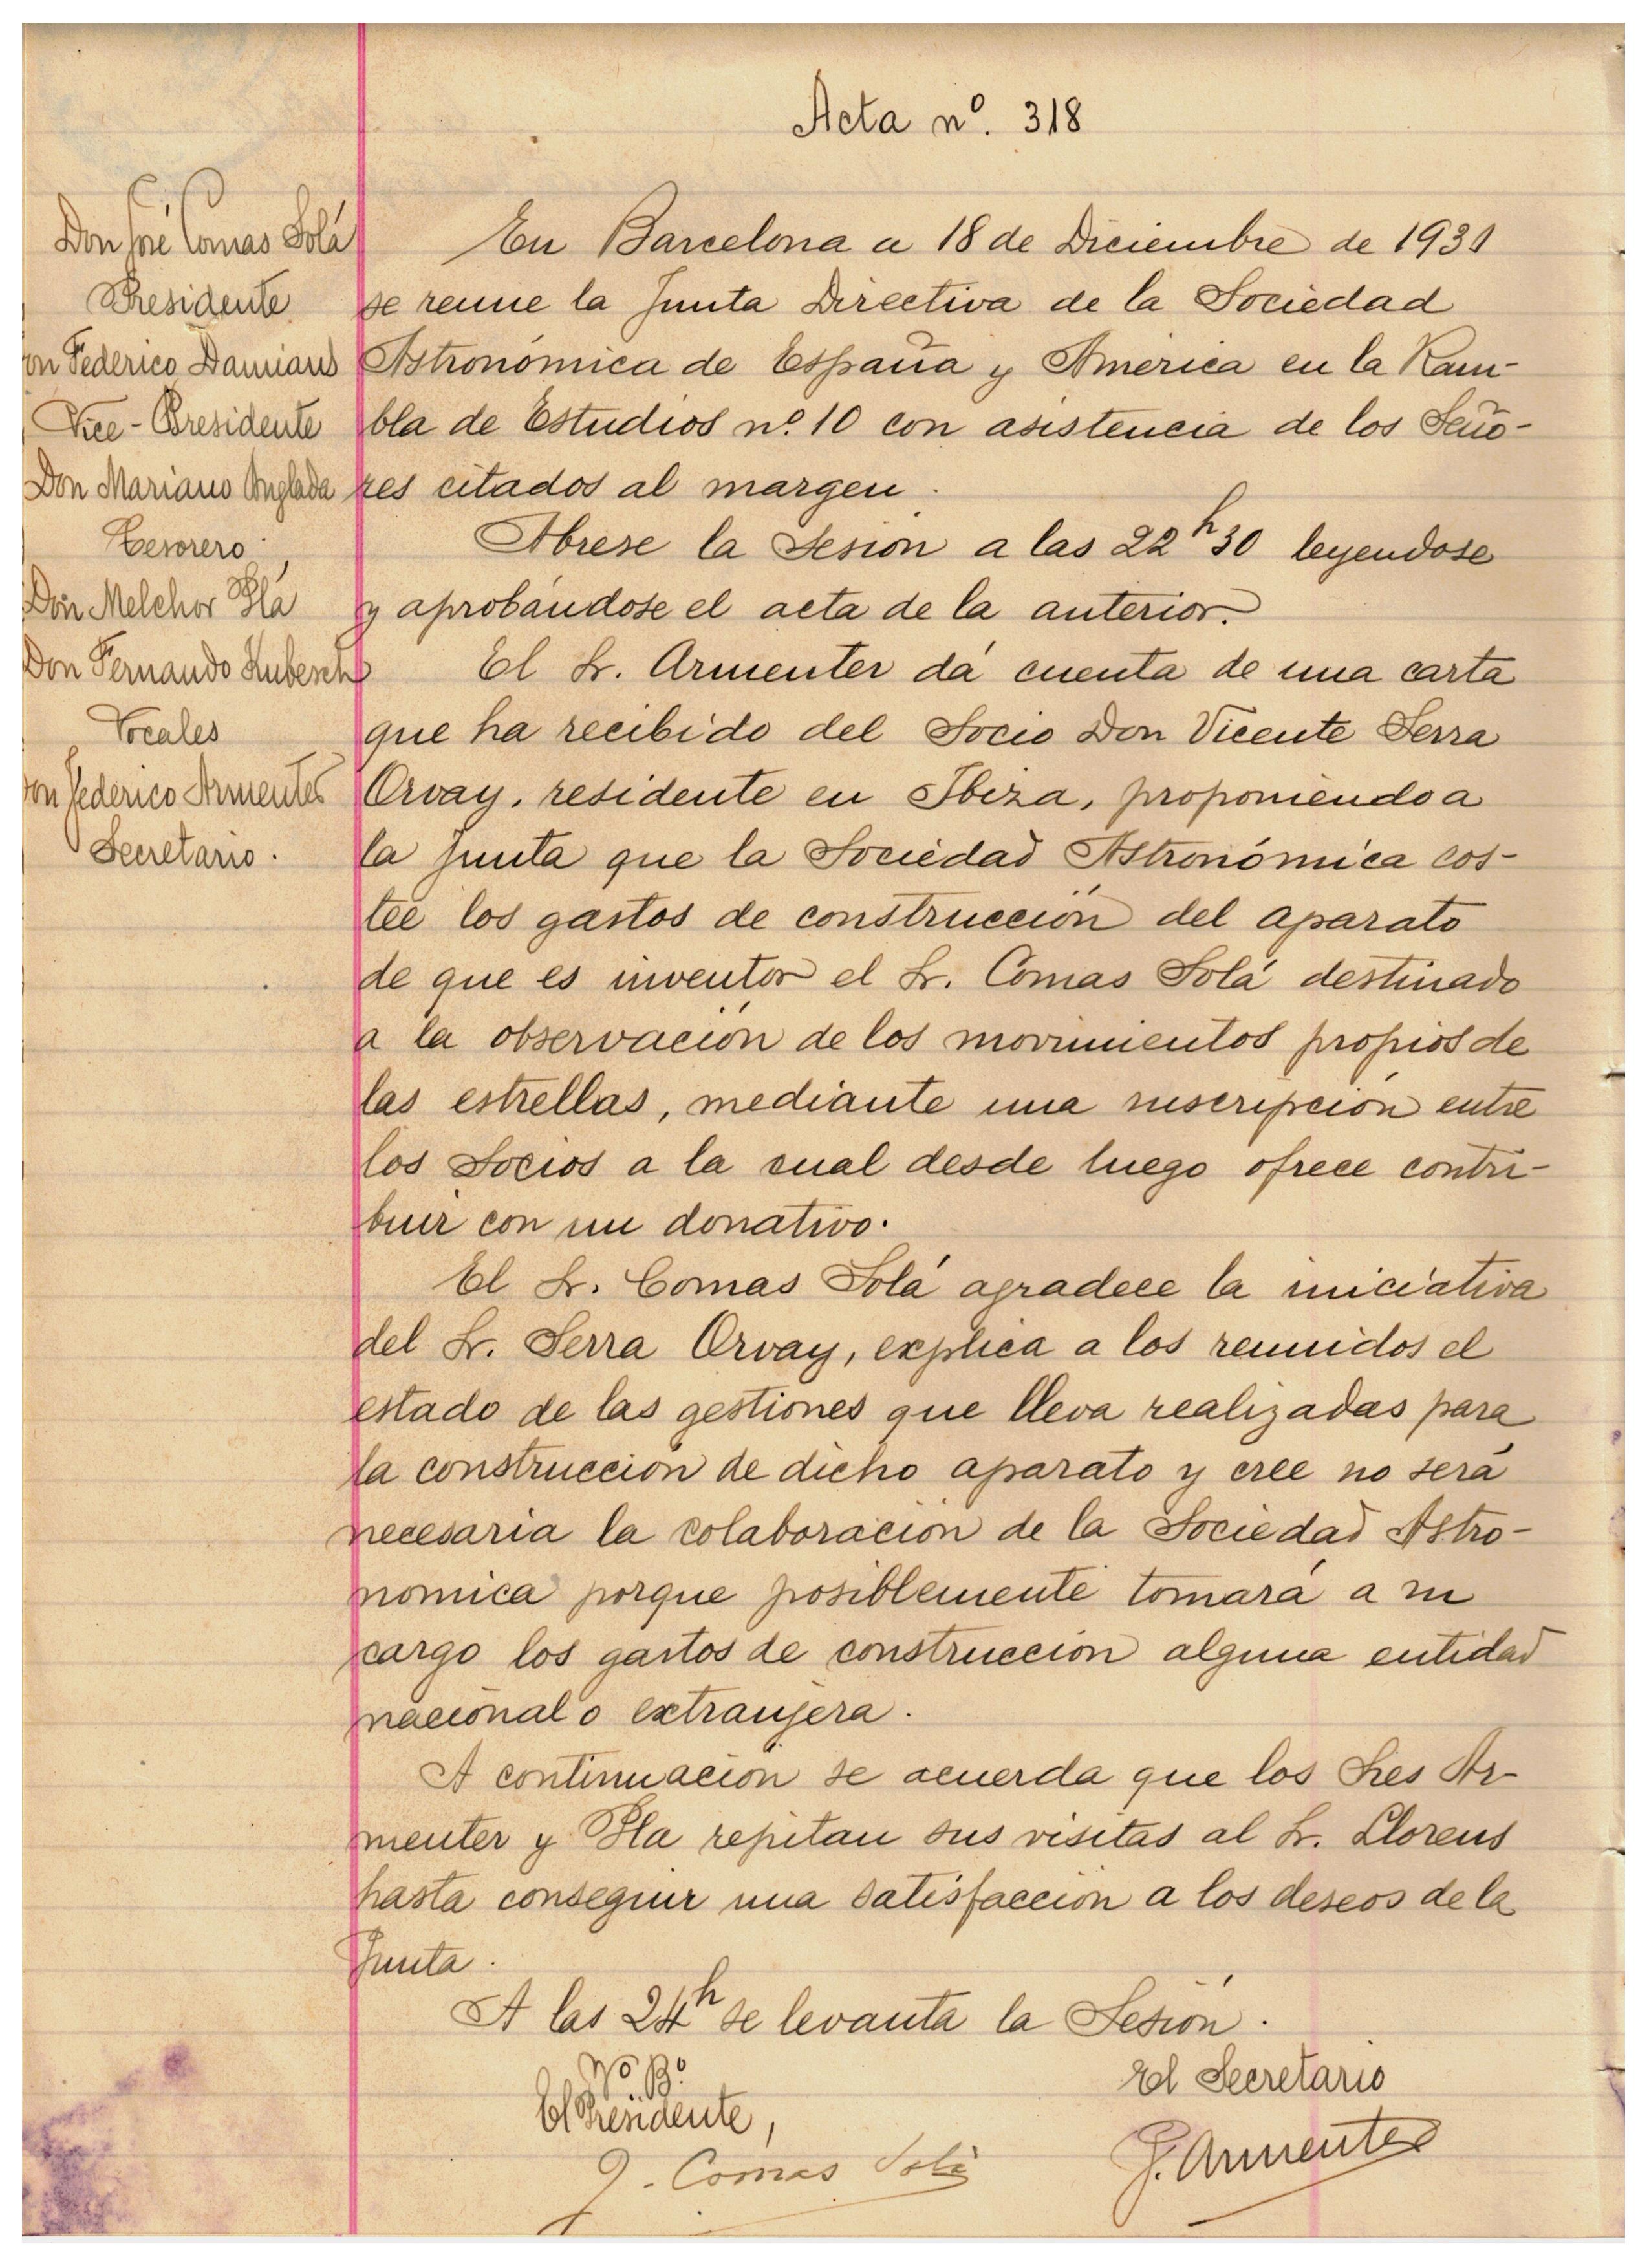 Acta nº. 318
Don José Comas Solá
Presidente
on Federico Damians
Vice-Presidente
Don Mariano Anglada
Tesorero
Don Melchor Plá
Don Fernando Kubesch
Vocales
on Federico Armenter
Secretario.
En Barcelona a 18 de Diciembre de 1931
se reune la Junta Directiva de la Sociedad
Astronómica de España y America en la Ram-
bla de Estudios nº. 10 con asistencia de los Seño-
res citados al margen.
Abrese la Sesión a las 22h 30 leyendose
y aprobándose el acta de la anterior.
El Sr. Armenter dá cuenta de una carta
que ha recibido del Socio Don Vicente Serra
Orvay, residente en Ibiza, proponiendo a
la junta que la Sociedad Astronómica cos-
tée los gastos de construcción del aparato
de que es inventor el Sr. Comas Solá destinado
a la observación de los movimientos propios de
las estrellas, mediante una suscripción entre
los Socios a la cual desde luego ofrece contri-
buir con un donativo.
El Sr. Comas Solá agradece la iniciativa
del Sr. Serra Orvay, explica a los reunidos el
estado de las gestiones que lleva realizadas para
la construcción de dicho aparato y cree no será
necesaria la colaboración de la Sociedad Astro-
nomica porque posiblemente tomará a su
cargo los gastos de construcción alguna entidad
nacional o extranjera.
A continuación se acuerda que los Sres Ar-
menter y Pla repitan sus visitas al Sr. Llorens
hasta conseguir una satisfacción a los deseos de la
Junta.
A las 24h se levanta la Sesión.
Vº Bº
El Presidente,
J. Comas Solá
El Secretario
F. Armenter